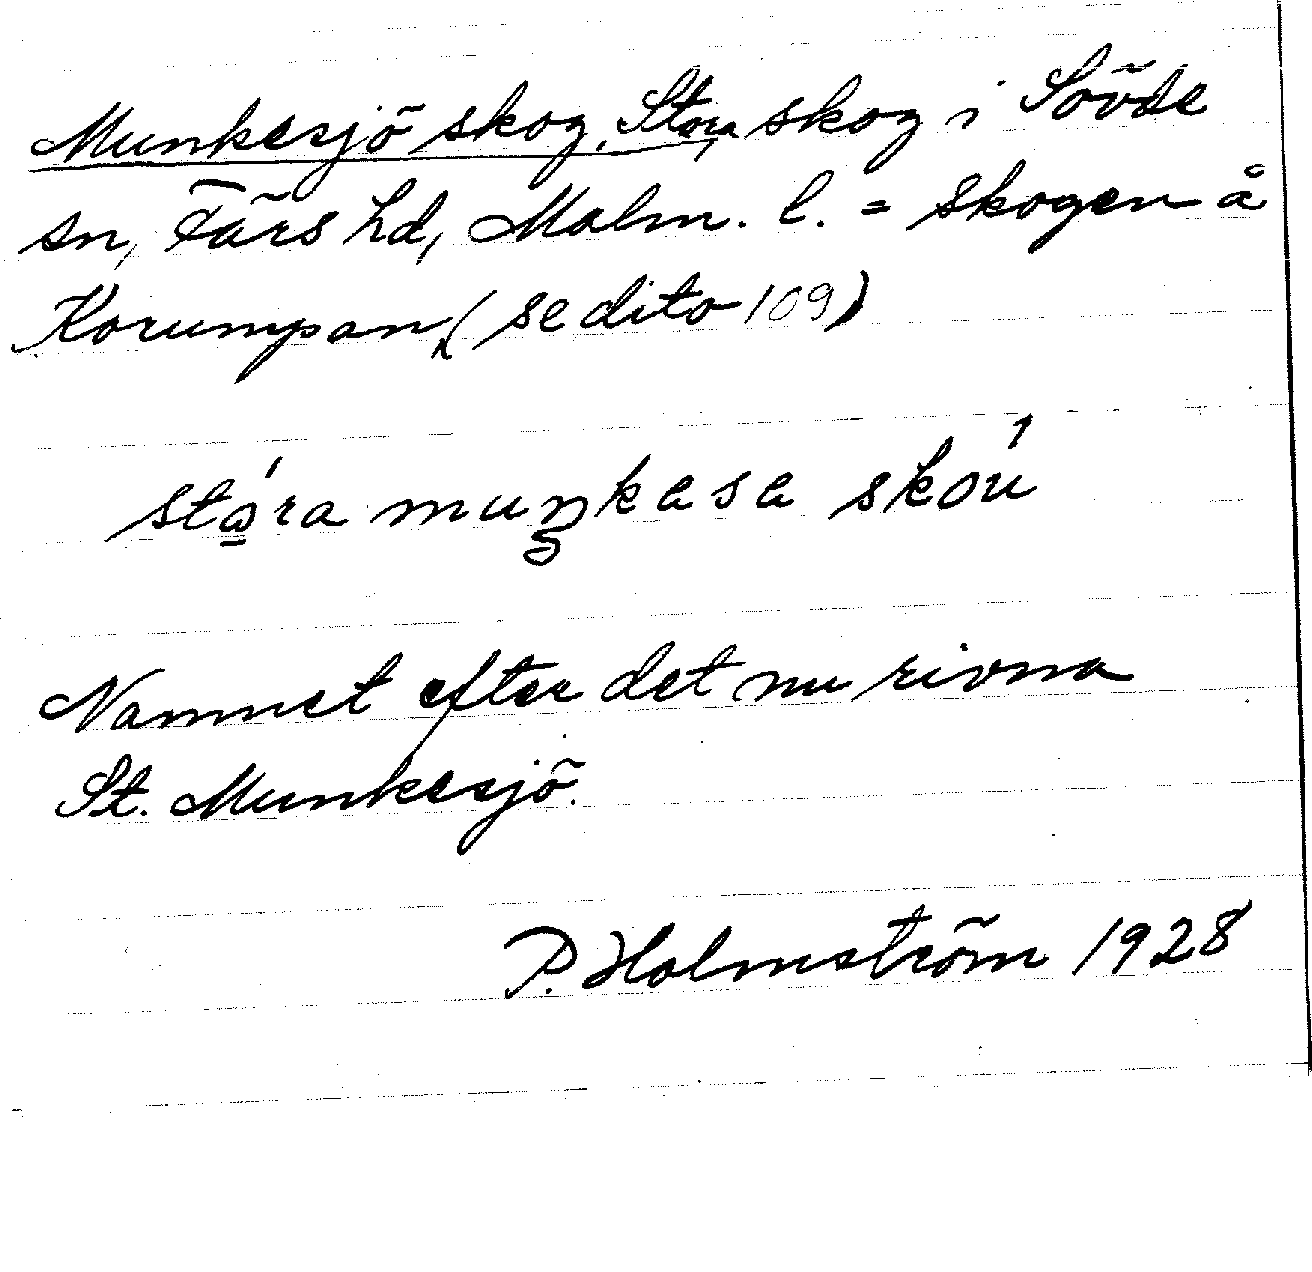 Munkesjö skog, Stora, skog i Sövde
sn, Färs hd, Malm. l. = skogen å
Korumpan (se dito 109)
stǻra muŋkasa skoú
Namnet efter det nu rivna
St. Munkesjö.
P. Holmström 1928